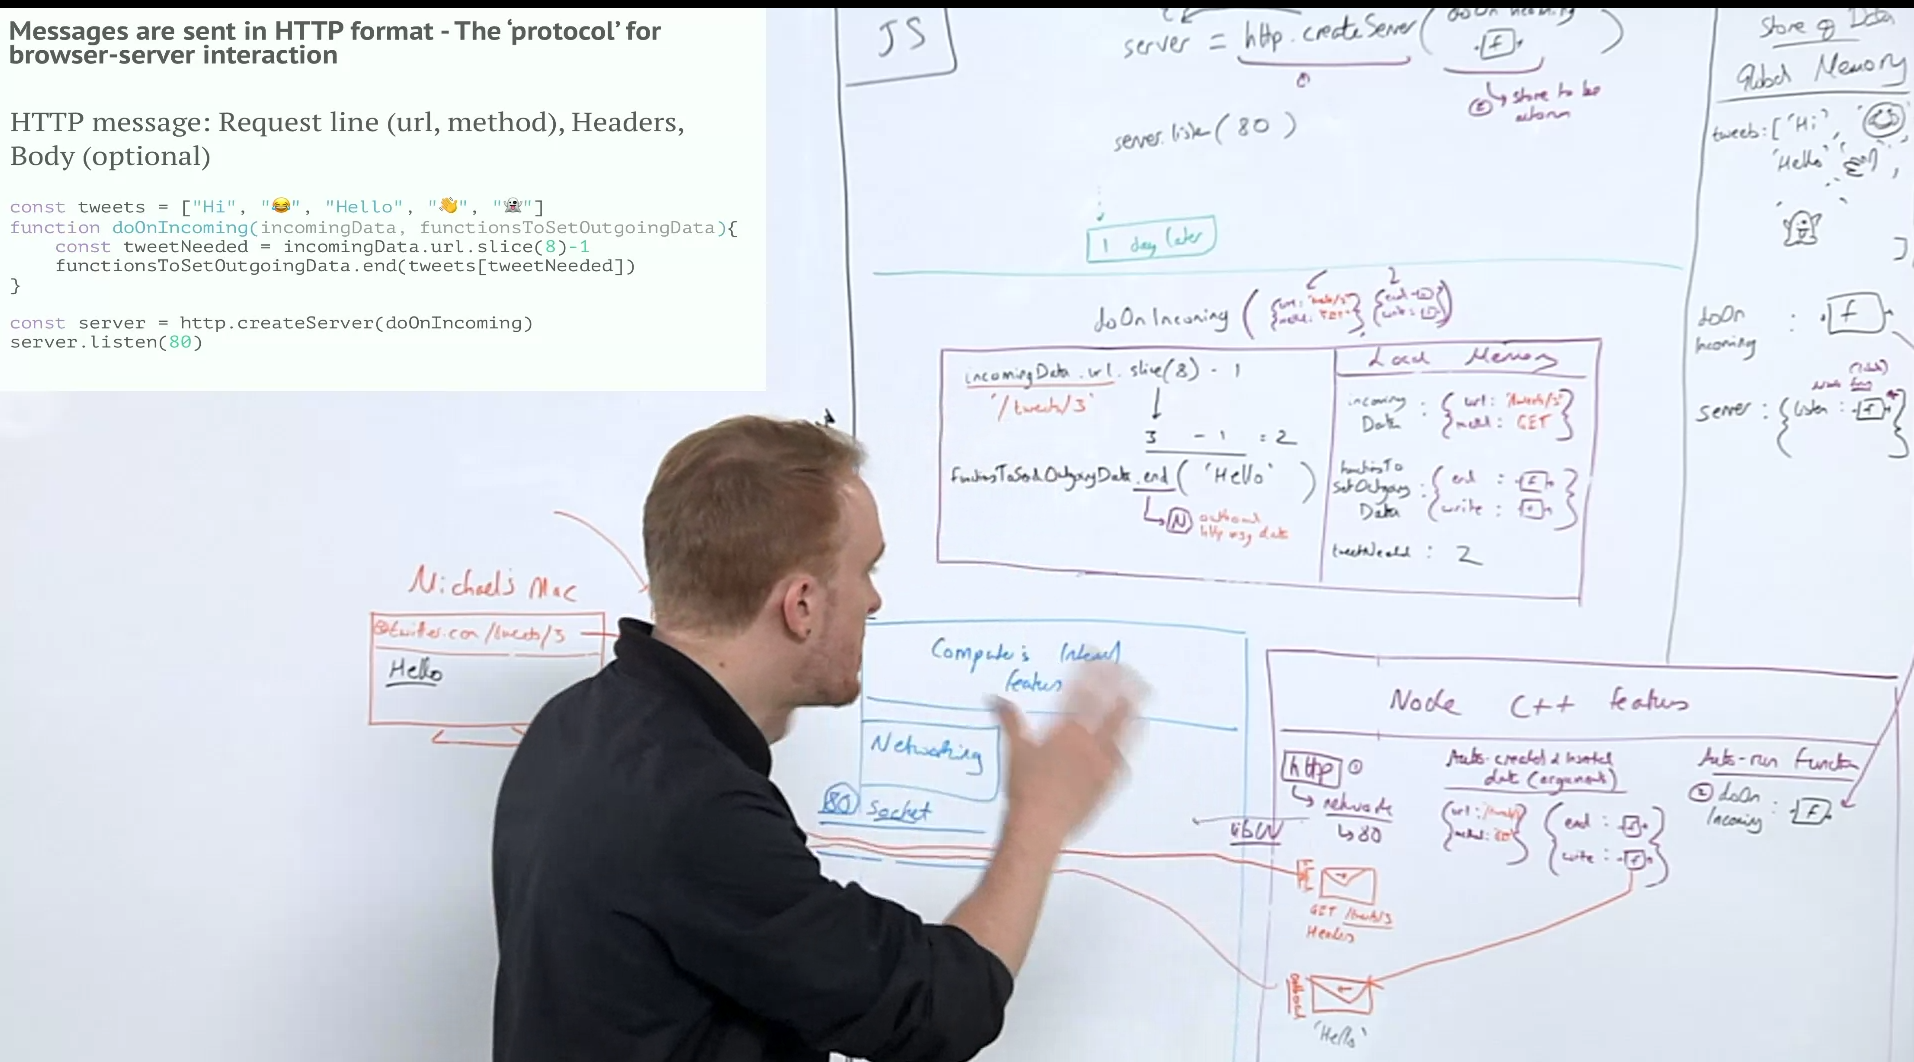 Messages are sent in HTTP format - The ‘protocol’ for
browser-server interaction
HTTP message: Request line (url, method), Headers,
Body (optional)
const tweets = ["Hi", "😂", "Hello", "👋", "👻"]
function doOnIncoming(incomingData, functionsToSetOutgoingData){
    const tweetNeeded = incomingData.url.slice(8)-1
    functionsToSetOutgoingData.end(tweets[tweetNeeded])
}
const server = http.createServer(doOnIncoming)
server.listen(80)
JS
server = http.createServer(
f
)
store to be
autorun
server.listen(80)
1 day later
doOnIncoming (
incomingData.url.slice(8) - 1
'/tweets/3'
3 - 1 = 2
.end( 'Hello' )
N
Local Memory
incoming
Data : { url: '/tweets/3'
GET }
SetOutgoing
Data : { end : f
write : f }
tweetNeeded : 2
Store of Data
Global Memory
tweets: ['Hi',
'Hello'
]
doOn
Incoming : f
server : { listen : f }
Michael's Mac
twitter.com/tweets/3
Hello
Computer's Internal
features
Networking
80 Socket
libuv
Node C++ features
http 1
network
↳ 80
Auto-created & inserted
data (arguments)
{ url:
{ end : f
write : f }
Auto-run function
2 doOn
Incoming : f
GET /tweets/3
Headers
'Hello'